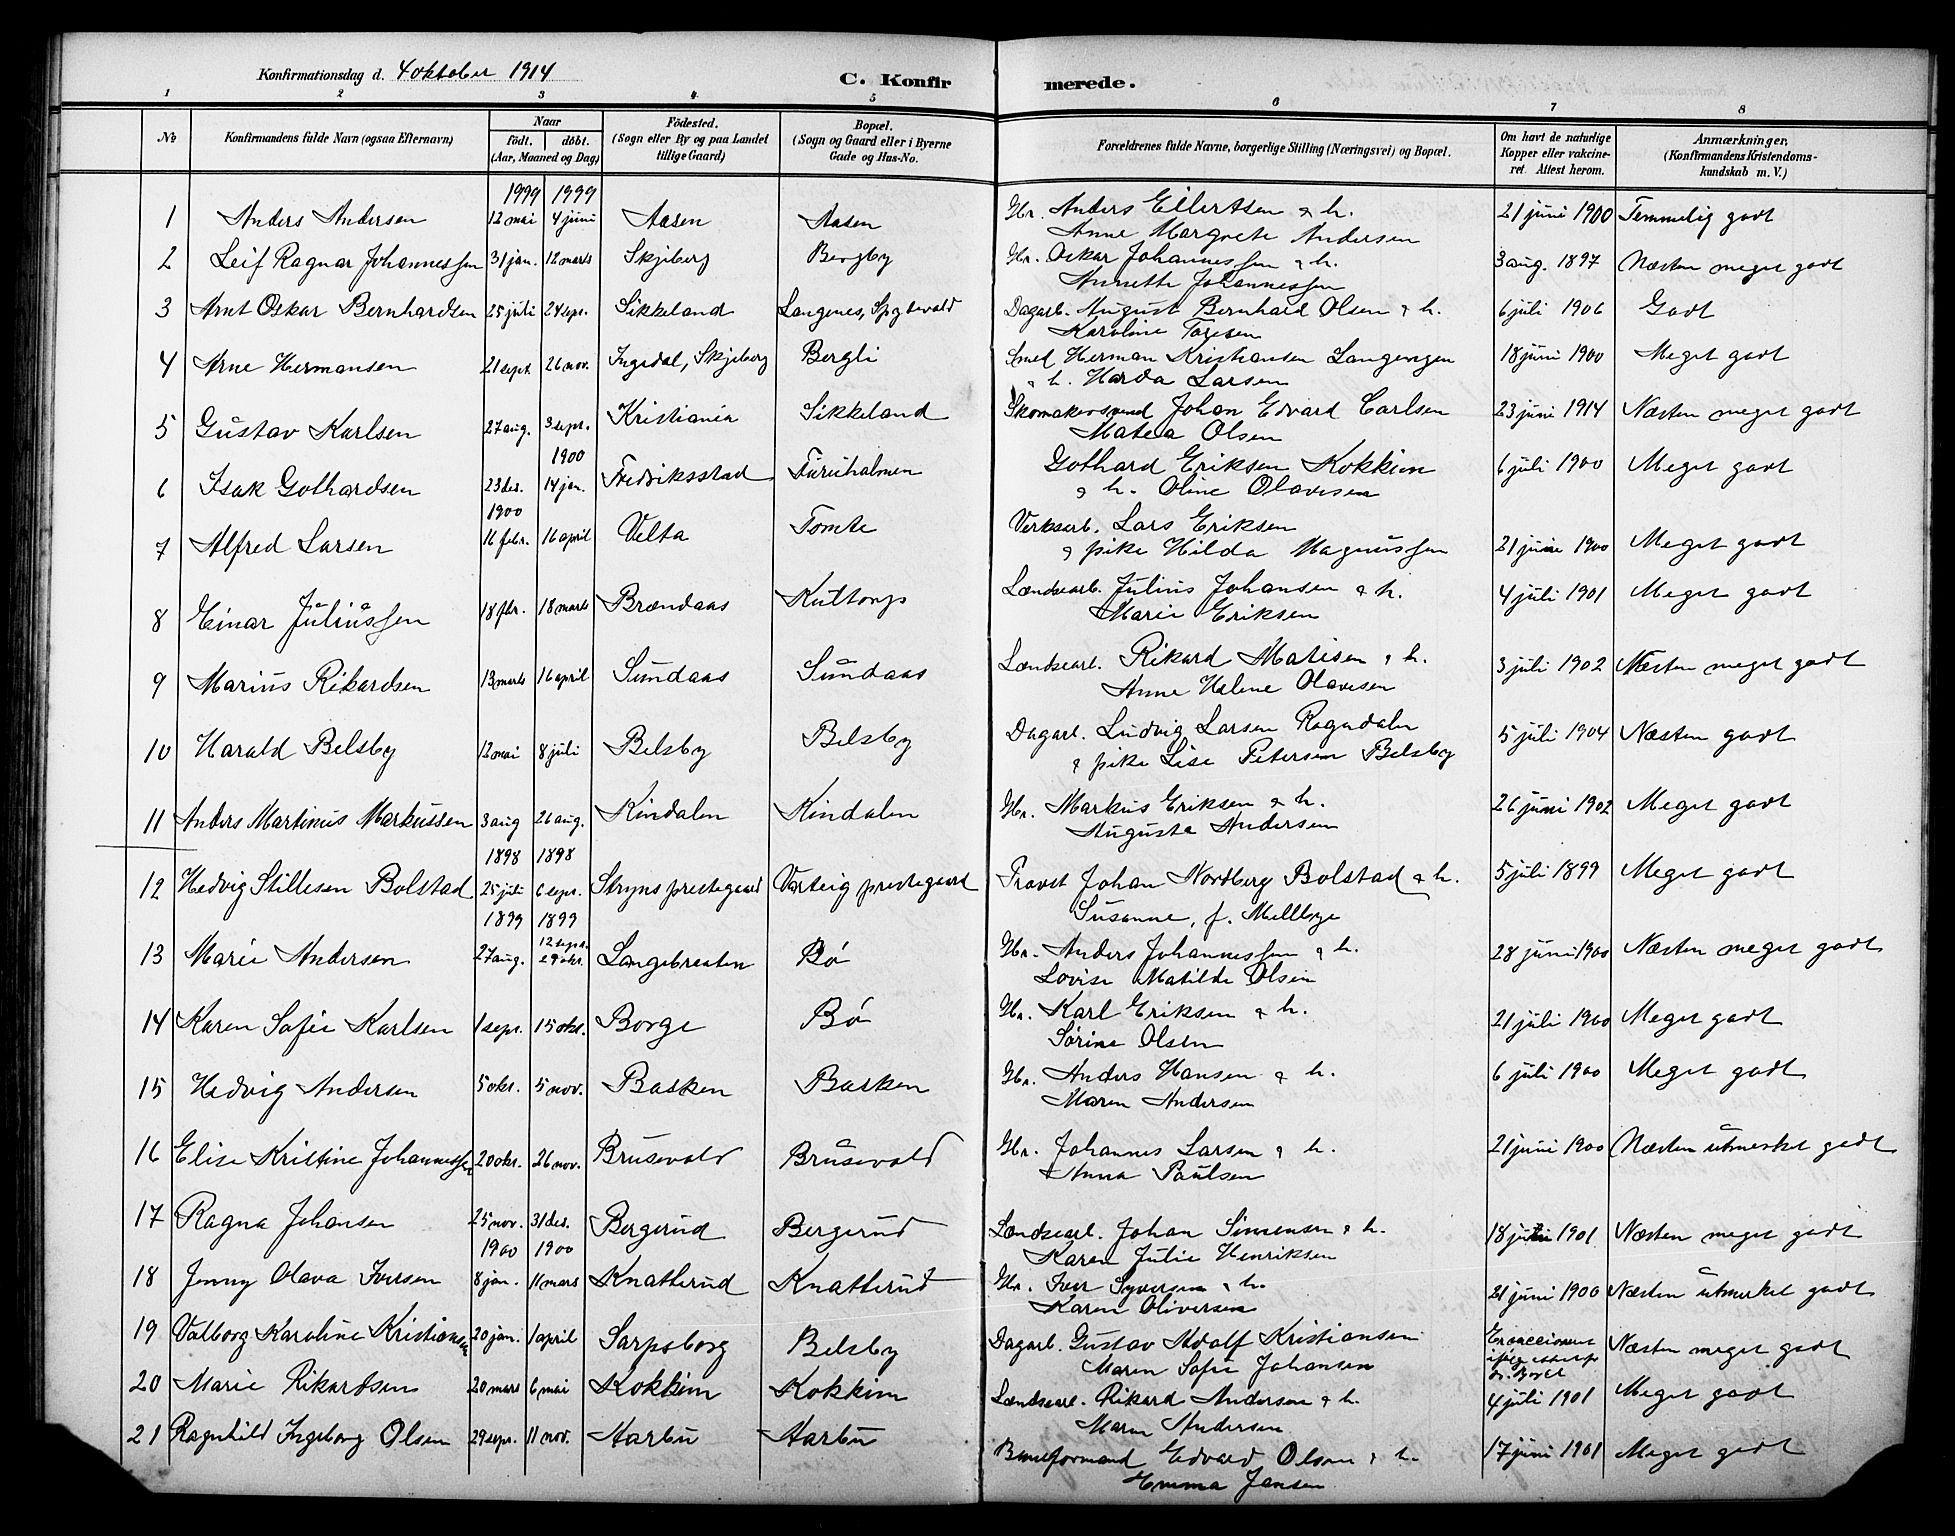 Konfirmationsdag d. 4 oktober 1914 C. Konfirmerede.
1 2 3 4 5 6 7 8
No Konfirmandens fulde Navn (ogsaa Efternavn) Naar født. døbt. (Aar, Maaned og Dag) Fødested. (Sogn eller By og paa Landet tillige Gaard) Bopæl. (Sogn og Gaard eller i Byerne Gade og Hus-No.) Forældrenes fulde Navne, borgerlige Stilling (Næringsvei) og Bopæl. Om havt de naturlige Kopper eller vakcineret. Attest herom. Anmærkninger, (Konfirmandens Kristendomskundskab m. V.)
1999 1999
1 Anders Andersen 12 mai 4 juni Aasen Aasen Gbr. Anders Eilertsen & h. 21 juni 1900 Temmelig godt
Anne Margrete Andersen
2 Leif Ragnar Johannessen 31 jan. 12 marts Skjeberg Bergby Gbr. Oskar Johannessen & h. 3 aug. 1897 Næsten meget godt
Annette Johannessen
3 Arnt Oskar Bernhardsen 25 juli 24 sept. Sikkeland Langenes, Dagarb. August Bernhard Olsen & h. 6 juli 1906 Godt
Karoline Toresen
4 Arne Hermansen 21 sept. 26 nov. Ingedal, Skjeberg Bergli Smed Herman Kristiansen Langengen 18 juni 1900 Meget godt
& h. Harda Larsen
5 Gustav Karlsen 27 aug. 3 sept. Kristiania Sikkeland Skomakersvend Johan Edvard Carlsen 23 juni 1914 Næsten meget godt
Matea Olsen
1900
6 Isak Gothardsen 23 des. 14 jan. Fredriksstad Furuholmen Gothard Eriksen Kokkim 6 juli 1900 Meget godt
& h. Oline Olavesen
1900
7 Alfred Larsen 16 febr. 16 april Velta Tomte Verksarb. Lars Eriksen 21 juni 1900 Meget godt
& pike Hilda Magnussen
8 Einar Juliussen 18 fbr. 18 marts Brændaas Kultorp Landsearb. Julius Johansen & h. 4 juli 1901 Meget godt
Marie Eriksen
9 Marius Rikardsen 13 marts 16 april Sundaas Sundaas Landsearb. Rikard Matisen & h. 3 juli 1902 Næsten meget godt
Anne Helene Olavesen
10 Harald Belsby 12 mai 8 juli Belsby Belsby Dagarb. Ludvig Larsen Rogndalen 5 juli 1904 Næsten godt
& pike Lise Petersen Belsby
11 Anders Martinius Markussen 3 aug 26 aug. Kindalen Kindalen Gbr. Markus Eriksen & h. 26 juni 1902 Meget godt
Augusta Andersen
1898 1898
12 Hedvig Stillesen Bolstad 25 juli 6 sept. Stryns prestegaard Varteig prestegaard Provst Johan Nordberg Bolstad & h. 5 juli 1899 Meget godt
Susanne, f. Mellbye
1899 1899
13 Marie Andersen 27 aug. 12 sept. 29 okt. Langebraaten Bø Gbr. Anders Johannessen & h. 28 juni 1900 Næsten meget godt
Lovise Matilde Olsen
14 Karen Sofie Karlsen 1 sept. 15 okt. Borge Bø Gbr. Karl Eriksen & h. 21 juli 1900 Meget godt
Sørine Olsen
15 Hedvig Andersen 5 okt. 5 nov. Basken Basken Gbr. Anders Hansen & h. 6 juli 1900 Meget godt
Maren Andersen
16 Elise Kristine Johannessen 20 okt. 26 nov. Brusevold Brusevold Gbr. Johannes Larsen & h. 21 juni 1900 Næsten utmerket godt
Anna Paulsen
17 Ragna Johansen 25 nov. 31 des. Bergerud Bergerud Landsearb. Johan Simensen & h. 18 juni 1901 Næsten meget godt
Karen Julie Henriksen
1900 1900
18 Jenny Olava Iversen 8 jan. 11 mars Knatterud Knatterud Gbr. Iver Syversen & h. 21 juni 1900 Næsten utmerket godt
Karen Oliversen
19 Valborg Karoline Kristiansen 20 jan. 1 april Sarpsborg Belsby Dagarb. Gustav Adolf Kristiansen Er vaccineret Næsten meget godt
Maren Sofie Johansen
20 Marie Rikardsen 20 mars 6 mai Kokkim Kokkim Landsearb. Rikard Andersen & h. 4 juli 1901 Meget godt
Maren Andersen
21 Ragnhild Ingeborg Olsen 29 sept. 11 nov. Aarbu Aarbu Edvard Olsen & h. 17 juni 1901 Meget godt
Emma Jansen